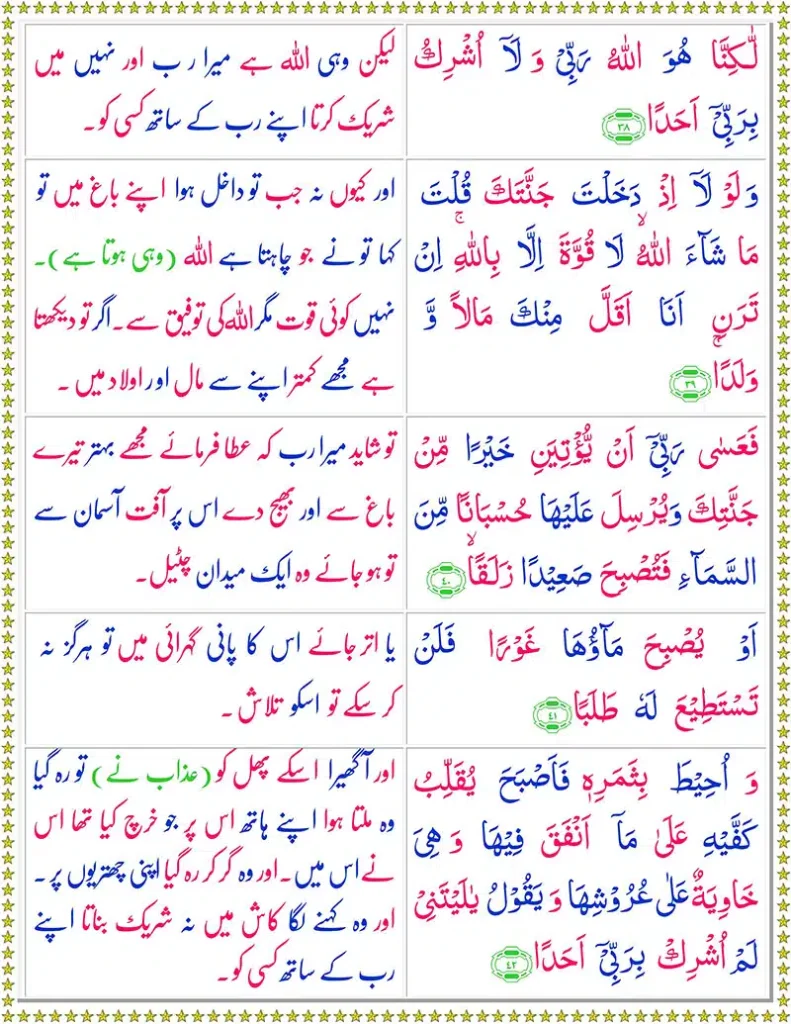 لٰكِنَّا۠ هُوَ اللّٰهُ رَبِّىْ وَ لَاۤ اُشْرِكُ
بِرَبِّىْۤ اَحَدًا ۝۳۸
لیکن وہی اللہ ہے میرا رب اور نہیں میں
شریک کرتا اپنے رب کے ساتھ کسی کو۔
وَلَوْ لَاۤ اِذْ دَخَلْتَ جَنَّتَكَ قُلْتَ
مَا شَآءَ اللّٰهُ ۙ لَا قُوَّةَ اِلَّا بِاللّٰهِ ۚ اِنْ
تَرَنِ اَنَا اَقَلَّ مِنْكَ مَالًا وَّ
وَلَدًا ۚ۝۳۹
اور کیوں نہ جب تو داخل ہوا اپنے باغ میں تو
کہا تو نے جو چاہتا ہے اللہ (وہی ہوتا ہے)۔
نہیں کوئی قوت مگر اللہ کی توفیق سے۔ اگر تو دیکھتا
ہے مجھے کمتر اپنے سے مال اور اولاد میں۔
فَعَسٰى رَبِّىْۤ اَنْ يُّؤْتِيَنِ خَيْرًا مِّنْ
جَنَّتِكَ وَيُرْسِلَ عَلَيْهَا حُسْبَانًا مِّنَ
السَّمَآءِ فَتُصْبِحَ صَعِيْدًا زَلَقًا ۙ۝۴۰
تو شاید میرا رب کہ عطا فرمائے مجھے بہتر تیرے
باغ سے اور بھیج دے اس پر آفت آسمان سے
تو ہو جائے وہ ایک میدان چٹیل۔
اَوْ يُصْبِحَ مَآؤُهَا غَوْرًا فَلَنْ
تَسْتَطِيْعَ لَهٗ طَلَبًا ۝۴۱
یا اتر جائے اس کا پانی گہرائی میں تو ہرگز نہ
کر سکے تو اسکو تلاش۔
وَ اُحِيْطَ بِثَمَرِهٖ فَاَصْبَحَ يُقَلِّبُ
كَفَّيْهِ عَلٰى مَاۤ اَنْفَقَ فِيْهَا وَ هِىَ
خَاوِيَةٌ عَلٰى عُرُوْشِهَا وَ يَقُوْلُ يٰلَيْتَنِىْ
لَمْ اُشْرِكْ بِرَبِّىْۤ اَحَدًا ۝۴۲
اور آ گھیرا اسکے پھل کو (عذاب نے) تو رہ گیا
وہ ملتا ہوا اپنے ہاتھ اس پر جو خرچ کیا تھا اس
نے اس میں۔ اور وہ گر کر رہ گیا اپنی چھتریوں پر۔
اور وہ کہنے لگا کاش میں نہ شریک بناتا اپنے
رب کے ساتھ کسی کو۔